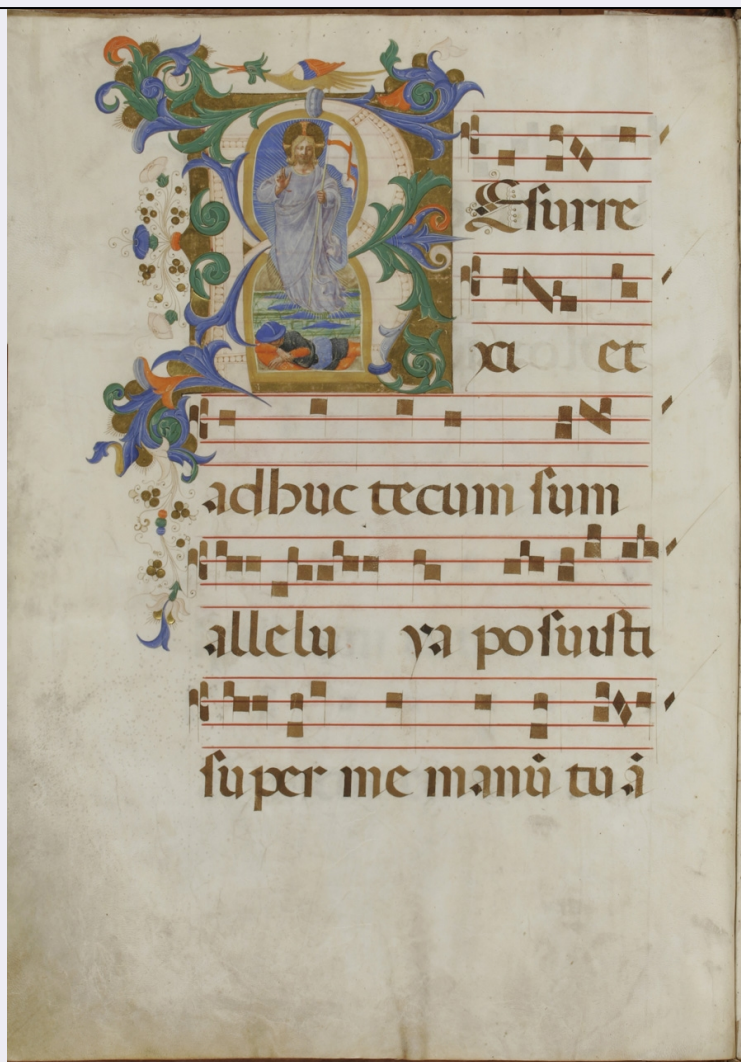 REsurre
xi et
adhuc tecum sum
allelu ya posuisti
super me manū tuā